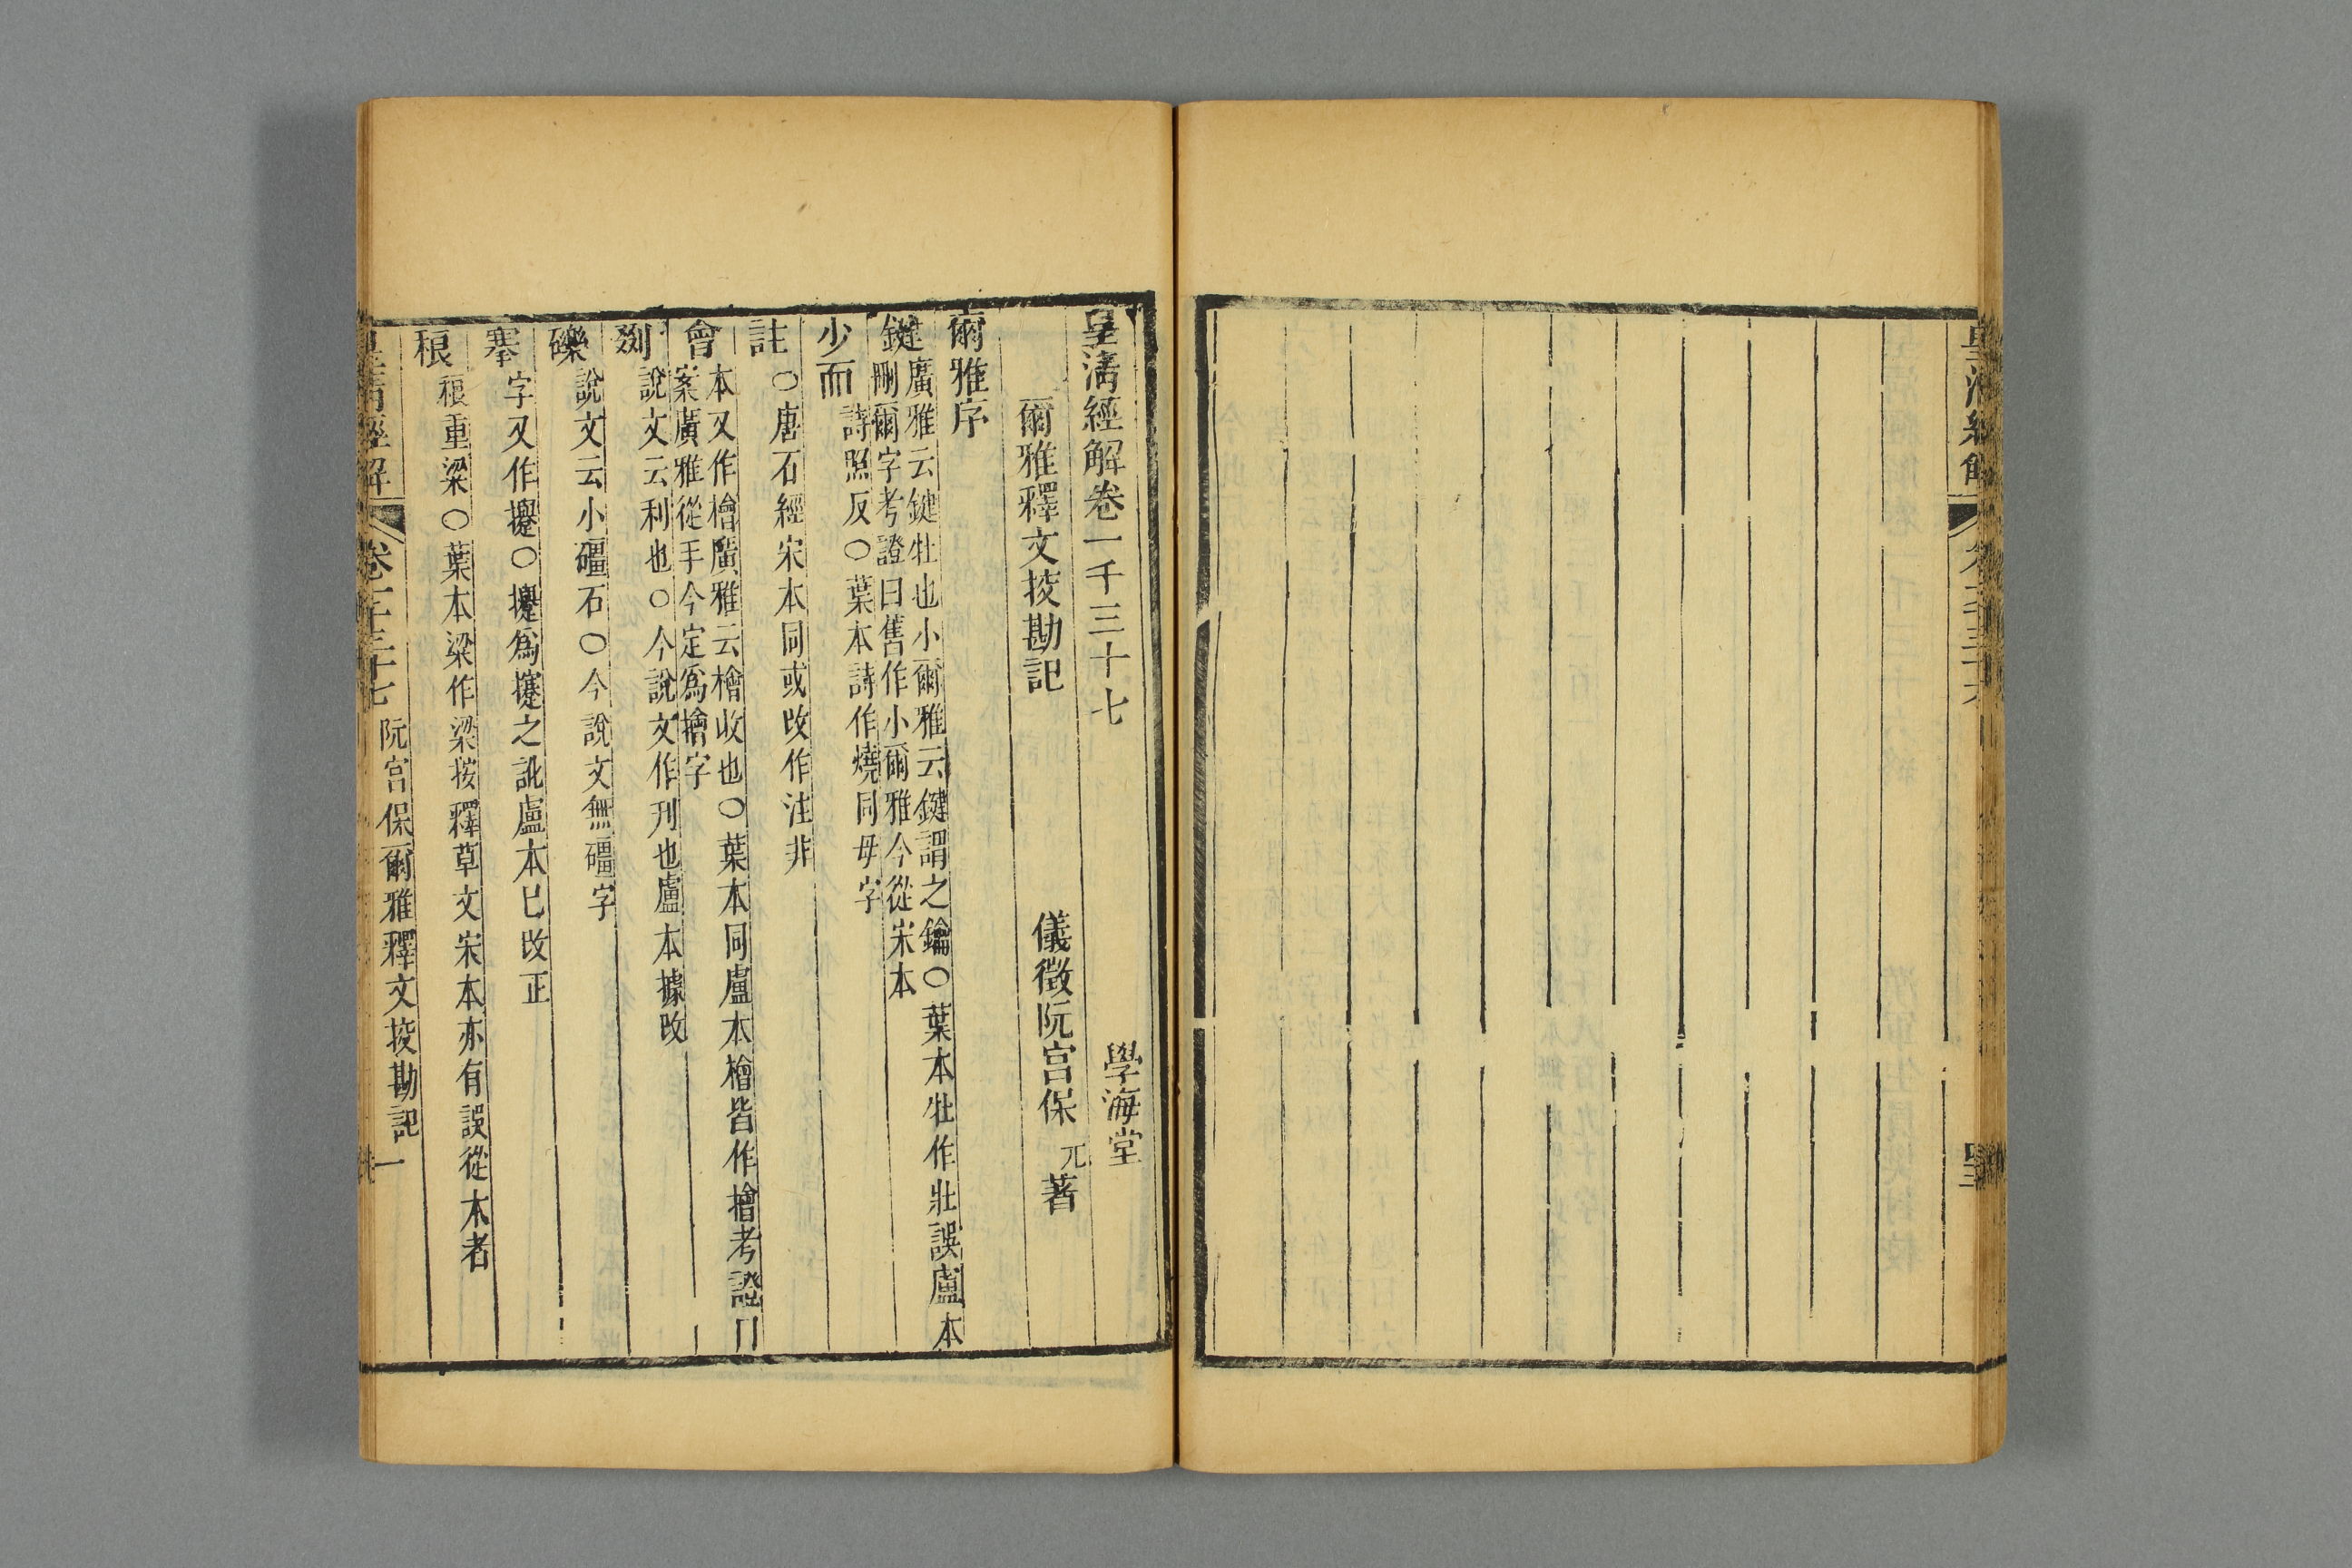 皇清經解卷一千三十七
學海堂
爾雅釋文挍勘記
儀徵阮宮保元著
爾雅序
鍵
廣雅云鍵牡也小爾雅云鍵謂之鑰〇葉本牡作壯誤盧本
刪爾字考證曰舊作小爾雅今從宋本
少而
詩照反〇葉本詩作燒同毋字
註
〇唐石經宋本同或改作注非
會
本又作檜廣雅云檜收也〇葉本同盧本檜皆作擔考證曰
案廣雅從手今定爲擔字
剟
說文云利也〇今說文作刊也盧本據改
礫
說文云小礓石〇今說文無礓字
搴
字又作攓〇攓爲攓之訛盧本已改正
稂
稂重梁〇葉本梁作梁按釋草文宋本亦有誤從木者
皇清經解
卷一千三十七
阮宮保爾雅釋文挍勘記
一